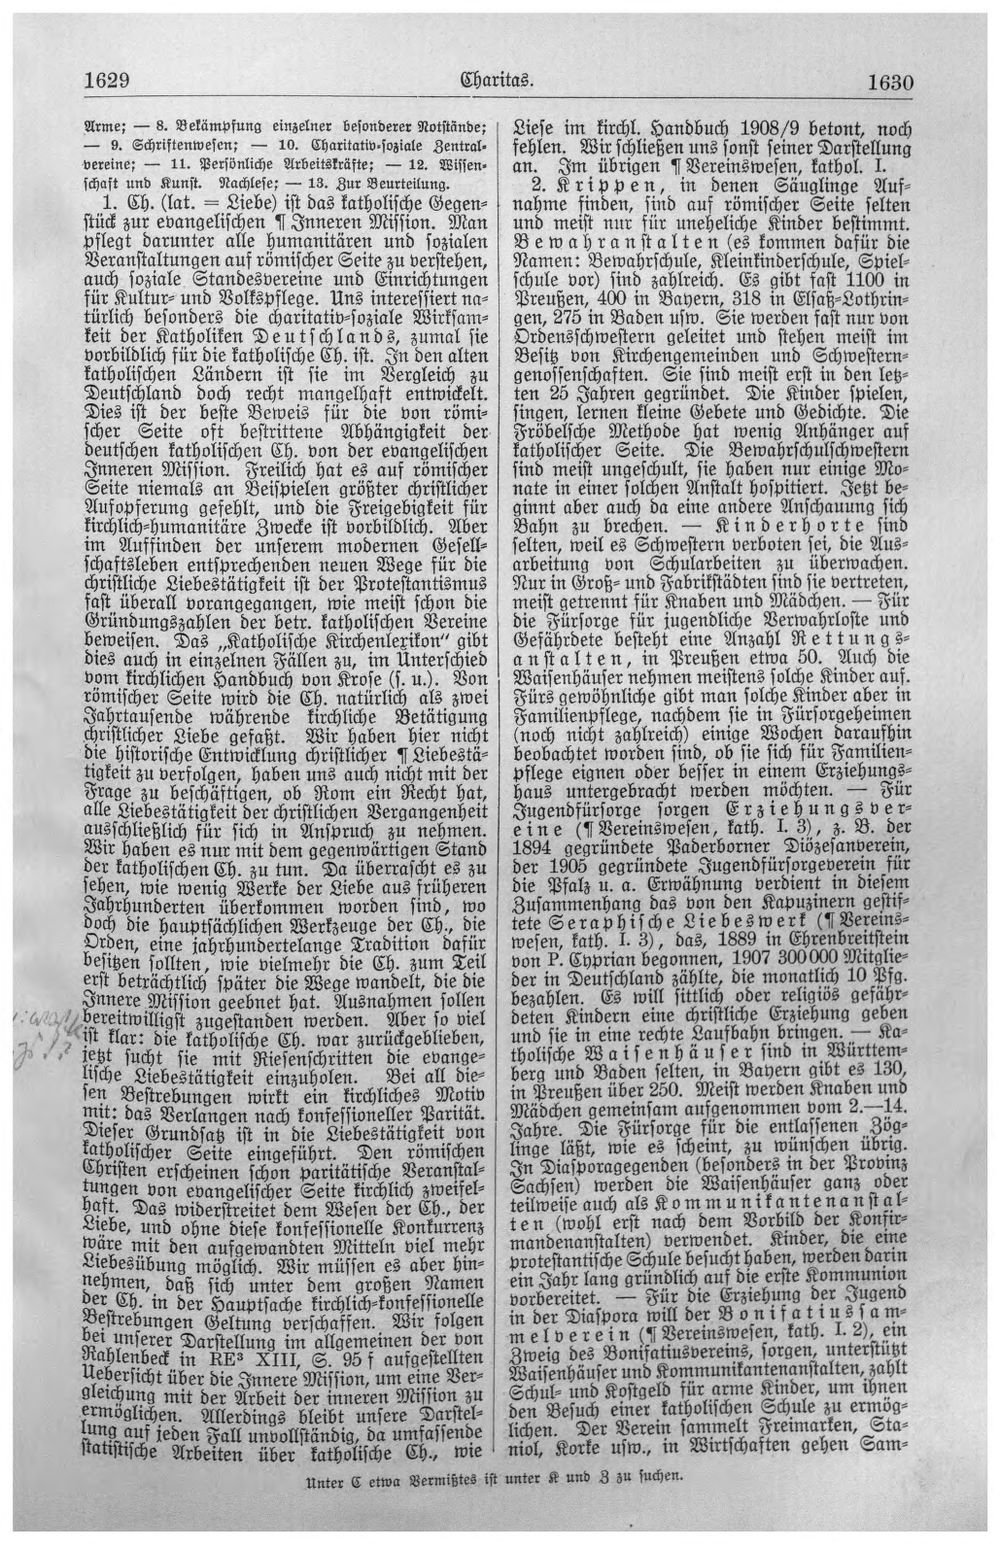 1629
Charitas.
1630
Arme; — 8. Bekämpfung einzelner besonderer Notstände;
— 9. Schriftenwesen; — 10. Charitativ-soziale Zentral-
vereine; — 11. Persönliche Arbeitskräfte; — 12. Wissen-
schaft und Kunst. Nachlese; — 13. Zur Beurteilung.
1. Ch. (lat. = Liebe) ist das katholische Gegen-
stück zur evangelischen ¶ Inneren Mission. Man
pflegt darunter alle humanitären und sozialen
Veranstaltungen auf römischer Seite zu verstehen,
auch soziale Standesvereine und Einrichtungen
für Kultur- und Volkspflege. Uns interessiert na-
türlich besonders die charitativ-soziale Wirksam-
keit der Katholiken Deutschlands, zumal sie
vorbildlich für die katholische Ch. ist. In den alten
katholischen Ländern ist sie im Vergleich zu
Deutschland doch recht mangelhaft entwickelt.
Dies ist der beste Beweis für die von römi-
scher Seite oft bestrittene Abhängigkeit der
deutschen katholischen Ch. von der evangelischen
Inneren Mission. Freilich hat es auf römischer
Seite niemals an Beispielen größter christlicher
Aufopferung gefehlt, und die Freigebigkeit für
kirchlich-humanitäre Zwecke ist vorbildlich. Aber
im Auffinden der unserem modernen Gesell-
schaftsleben entsprechenden neuen Wege für die
christliche Liebestätigkeit ist der Protestantismus
fast überall vorangegangen, wie meist schon die
Gründungszahlen der betr. katholischen Vereine
beweisen. Das „Katholische Kirchenlexikon“ gibt
dies auch in einzelnen Fällen zu, im Unterschied
vom kirchlichen Handbuch von Krose (s. u.). Von
römischer Seite wird die Ch. natürlich als zwei
Jahrtausende währende kirchliche Betätigung
christlicher Liebe gefaßt. Wir haben hier nicht
die historische Entwicklung christlicher ¶ Liebestä-
tigkeit zu verfolgen, haben uns auch nicht mit der
Frage zu beschäftigen, ob Rom ein Recht hat,
alle Liebestätigkeit der christlichen Vergangenheit
ausschließlich für sich in Anspruch zu nehmen.
Wir haben es nur mit dem gegenwärtigen Stand
der katholischen Ch. zu tun. Da überrascht es zu
sehen, wie wenig Werke der Liebe aus früheren
Jahrhunderten überkommen worden sind, wo
doch die hauptsächlichen Werkzeuge der Ch., die
Orden, eine jahrhundertelange Tradition dafür
besitzen sollten, wie vielmehr die Ch. zum Teil
erst beträchtlich später die Wege wandelt, die die
Innere Mission geebnet hat. Ausnahmen sollen
bereitwilligst zugestanden werden. Aber so viel
ist klar: die katholische Ch. war zurückgeblieben,
jetzt sucht sie mit Riesenschritten die evange-
lische Liebestätigkeit einzuholen. Bei all die-
sen Bestrebungen wirkt ein kirchliches Motiv
mit: das Verlangen nach konfessioneller Parität.
Dieser Grundsatz ist in die Liebestätigkeit von
katholischer Seite eingeführt. Den römischen
Christen erscheinen schon paritätische Veranstal-
tungen von evangelischer Seite kirchlich zweifel-
haft. Das widerstreitet dem Wesen der Ch., der
Liebe, und ohne diese konfessionelle Konkurrenz
wäre mit den aufgewandten Mitteln viel mehr
Liebesübung möglich. Wir müssen es aber hin-
nehmen, daß sich unter dem großen Namen
der Ch. in der Hauptsache kirchlich-konfessionelle
Bestrebungen Geltung verschaffen. Wir folgen
bei unserer Darstellung im allgemeinen der von
Rahlenbeck in RE³ XIII, S. 95 f aufgestellten
Uebersicht über die Innere Mission, um eine Ver-
gleichung mit der Arbeit der inneren Mission zu
ermöglichen. Allerdings bleibt unsere Darstel-
lung auf jeden Fall unvollständig, da umfassende
statistische Arbeiten über katholische Ch., wie
Liese im kirchl. Handbuch 1908/9 betont, noch
fehlen. Wir schließen uns sonst seiner Darstellung
an. Im übrigen ¶ Vereinswesen, kathol. I.
2. Krippen, in denen Säuglinge Auf-
nahme finden, sind auf römischer Seite selten
und meist nur für uneheliche Kinder bestimmt.
Bewahranstalten (es kommen dafür die
Namen: Bewahrschule, Kleinkinderschule, Spiel-
schule vor) sind zahlreich. Es gibt fast 1100 in
Preußen, 400 in Bayern, 318 in Elsaß-Lothrin-
gen, 275 in Baden usw. Sie werden fast nur von
Ordensschwestern geleitet und stehen meist im
Besitz von Kirchengemeinden und Schwestern-
genossenschaften. Sie sind meist erst in den letz-
ten 25 Jahren gegründet. Die Kinder spielen,
singen, lernen kleine Gebete und Gedichte. Die
Fröbelsche Methode hat wenig Anhänger auf
katholischer Seite. Die Bewahrschulschwestern
sind meist ungeschult, sie haben nur einige Mo-
nate in einer solchen Anstalt hospitiert. Jetzt be-
ginnt aber auch da eine andere Anschauung sich
Bahn zu brechen. — Kinderhorte sind
selten, weil es Schwestern verboten sei, die Aus-
arbeitung von Schularbeiten zu überwachen.
Nur in Groß- und Fabrikstädten sind sie vertreten,
meist getrennt für Knaben und Mädchen. — Für
die Fürsorge für jugendliche Verwahrloste und
Gefährdete besteht eine Anzahl Rettungs-
anstalten, in Preußen etwa 50. Auch die
Waisenhäuser nehmen meistens solche Kinder auf.
Fürs gewöhnliche gibt man solche Kinder aber in
Familienpflege, nachdem sie in Fürsorgeheimen
(noch nicht zahlreich) einige Wochen daraufhin
beobachtet worden sind, ob sie sich für Familien-
pflege eignen oder besser in einem Erziehungs-
haus untergebracht werden möchten. — Für
Jugendfürsorge sorgen Erziehungsver-
eine (¶ Vereinswesen, kath. I. 3), z. B. der
1894 gegründete Paderborner Diözesanverein,
der 1905 gegründete Jugendfürsorgeverein für
die Pfalz u. a. Erwähnung verdient in diesem
Zusammenhang das von den Kapuzinern gestif-
tete Seraphische Liebeswerk (¶ Vereins-
wesen, kath. I. 3), das, 1889 in Ehrenbreitstein
von P. Cyprian begonnen, 1907 300 000 Mitglie-
der in Deutschland zählte, die monatlich 10 Pfg.
bezahlen. Es will sittlich oder religiös gefähr-
deten Kindern eine christliche Erziehung geben
und sie in eine rechte Laufbahn bringen. — Ka-
tholische Waisenhäuser sind in Württem-
berg und Baden selten, in Bayern gibt es 130,
in Preußen über 250. Meist werden Knaben und
Mädchen gemeinsam aufgenommen vom 2.—14.
Jahre. Die Fürsorge für die entlassenen Zög-
linge läßt, wie es scheint, zu wünschen übrig.
In Diasporagegenden (besonders in der Provinz
Sachsen) werden die Waisenhäuser ganz oder
teilweise auch als Kommunikantenanstal-
ten (wohl erst nach dem Vorbild der Konfir-
mandenanstalten) verwendet. Kinder, die eine
protestantische Schule besucht haben, werden darin
ein Jahr lang gründlich auf die erste Kommunion
vorbereitet. — Für die Erziehung der Jugend
in der Diaspora will der Bonifatiussam-
melverein (¶ Vereinswesen, kath. I. 2), ein
Zweig des Bonifatiusvereins, sorgen, unterstützt
Waisenhäuser und Kommunikantenanstalten, zahlt
Schul- und Kostgeld für arme Kinder, um ihnen
den Besuch einer katholischen Schule zu ermög-
lichen. Der Verein sammelt Freimarken, Sta-
niol, Korke usw., in Wirtschaften gehen Sam-
Unter C etwa Vermißtes ist unter K und Z zu suchen.